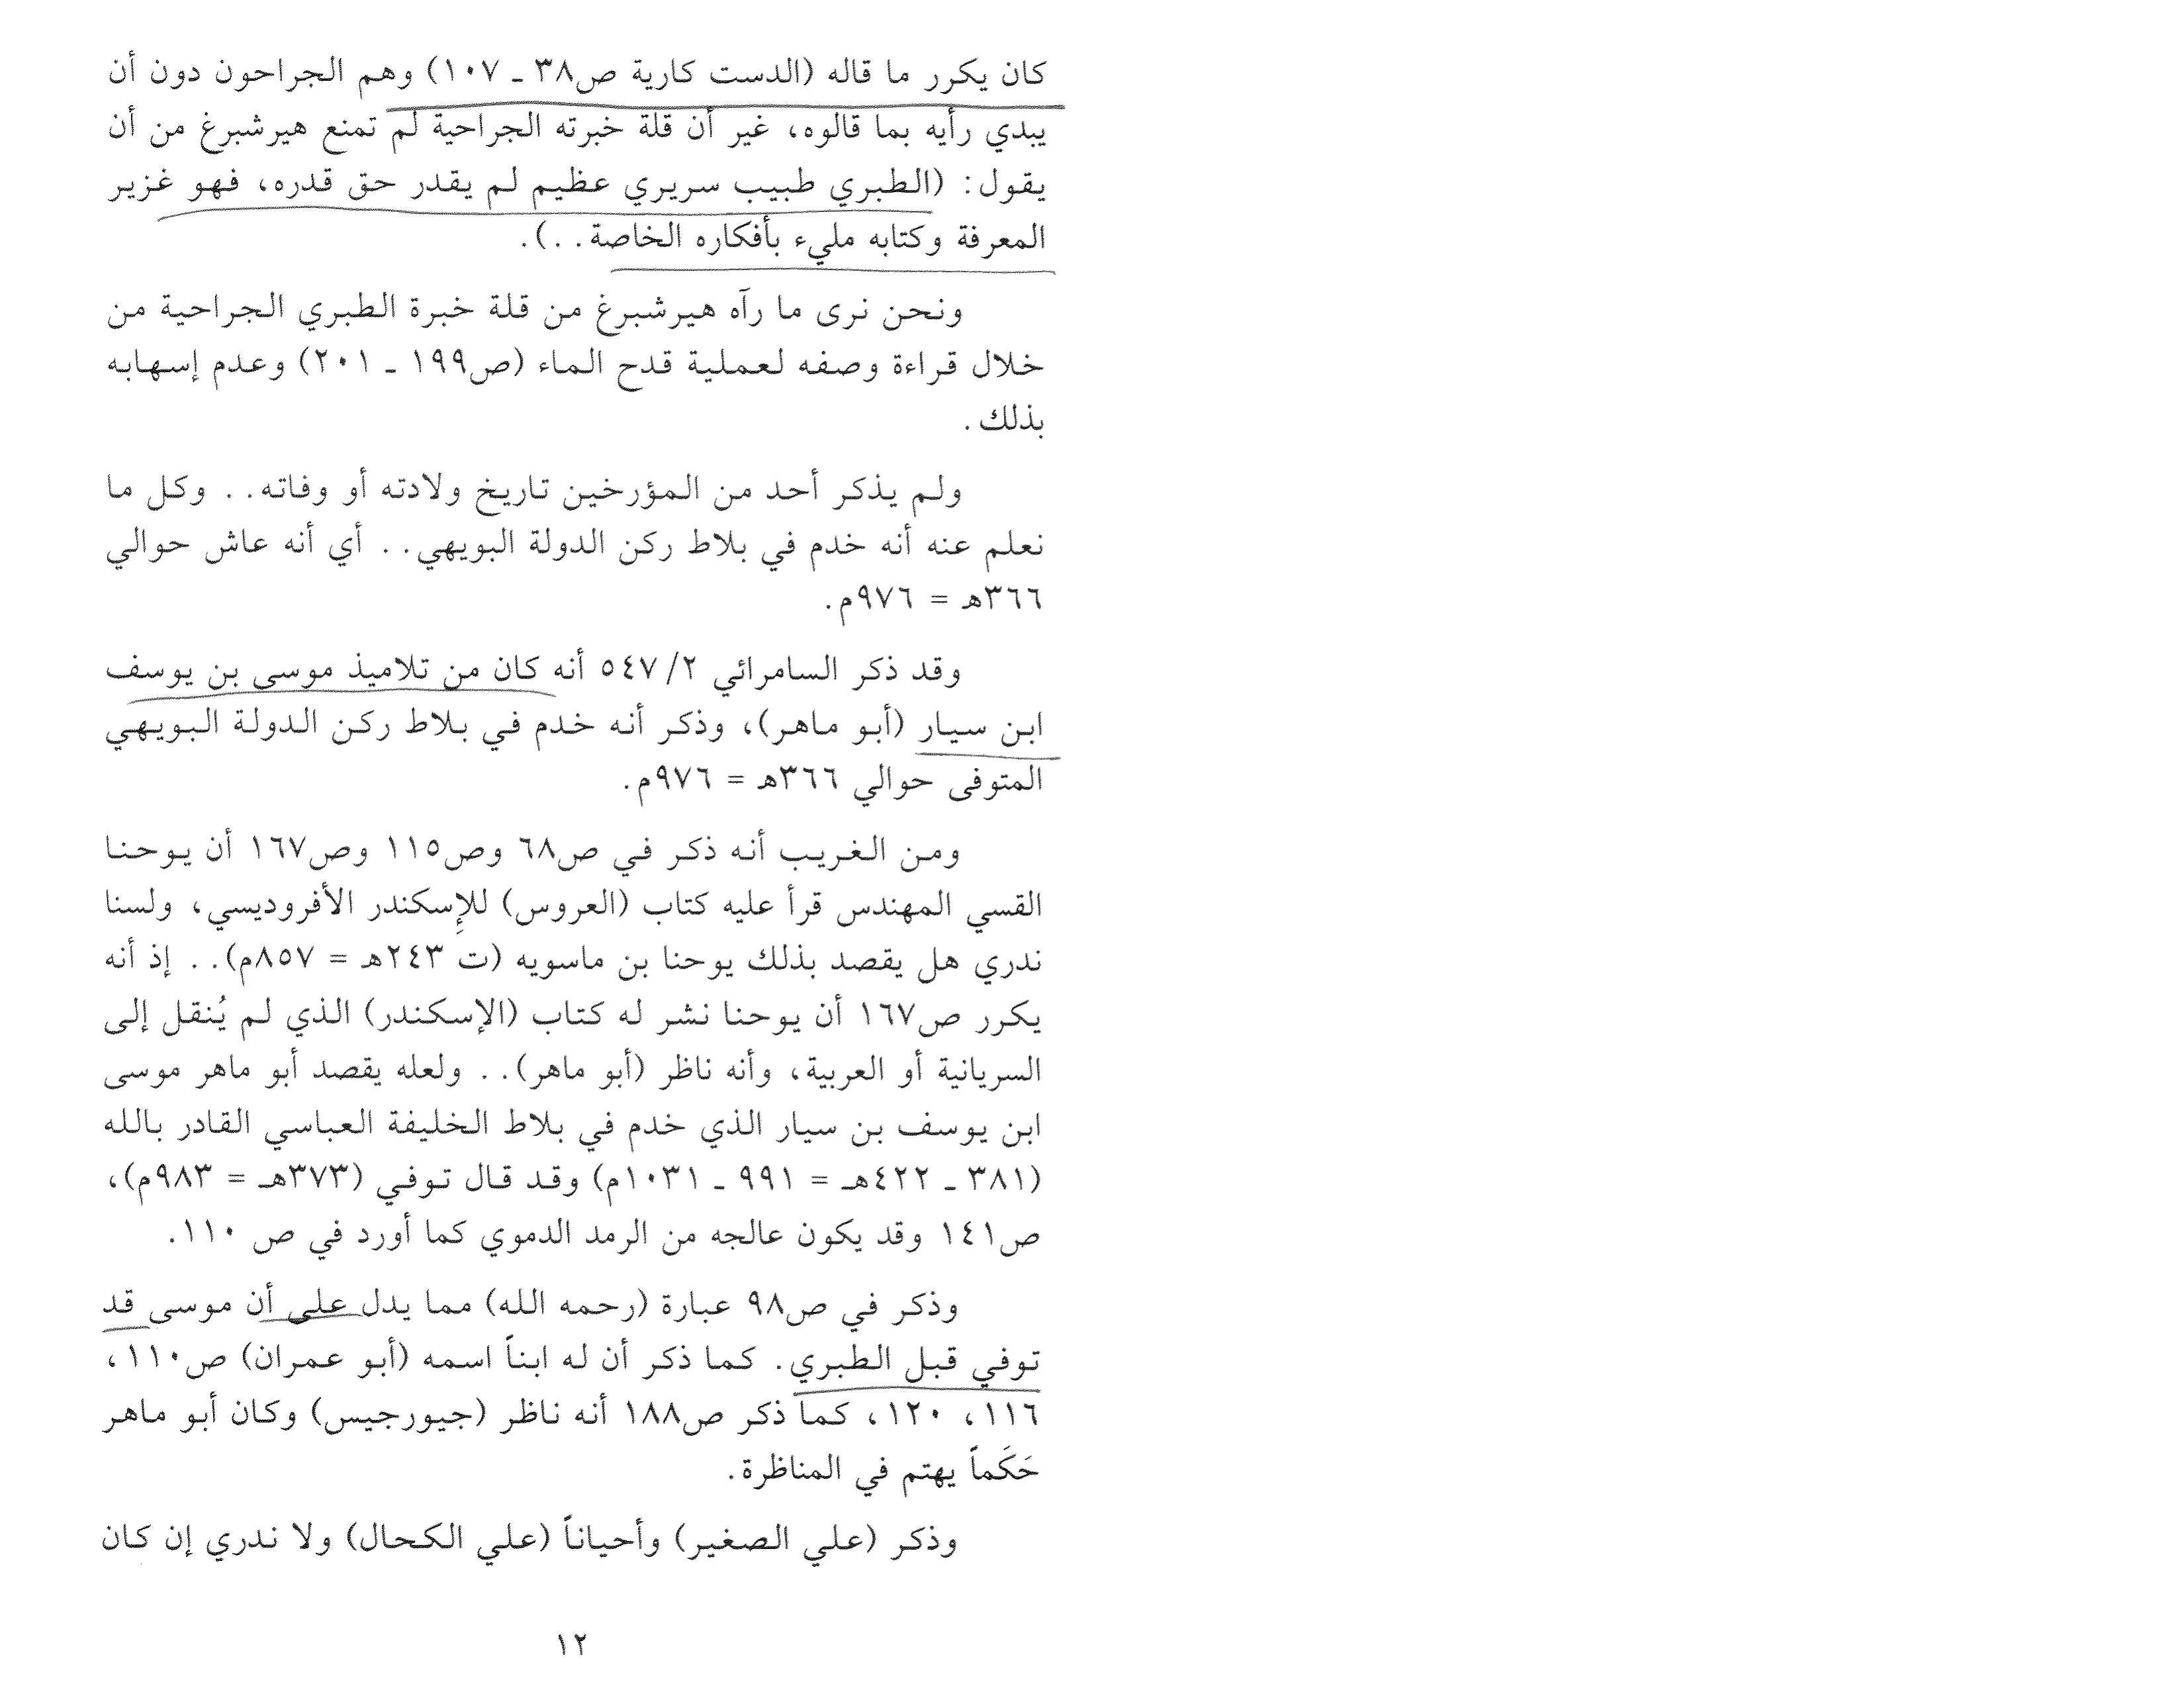 كان يكرر ما قاله (الدست كارية ص٣٨ ـ ١٠٧) وهم الجراحون دون أن
يبدي رأيه بما قالوه، غير أن قلة خبرته الجراحية لم تمنع هيرشبرغ من أن
يقول: (الطبري طبيب سريري عظيم لم يقدر حق قدره، فهو غزير
المعرفة وكتابه مليء بأفكاره الخاصة. . .).
ونحن نرى ما رآه هيرشبرغ من قلة خبرة الطبري الجراحية من
خلال قراءة وصفه لعملية قدح الماء (ص١٩٩ ـ ٢٠١) وعدم إسهابه
بذلك.
ولم يذكر أحد من المؤرخين تاريخ ولادته أو وفاته. . وكل ما
نعلم عنه أنه خدم في بلاط ركن الدولة البويهي. . أي أنه عاش حوالي
٣٦٦هـ = ٩٧٦م.
وقد ذكر السامرائي ٥٤٧/٢ أنه كان من تلاميذ موسى بن يوسف
ابن سيار (أبو ماهر)، وذكر أنه خدم في بلاط ركن الدولة البويهي
المتوفى حوالي ٣٦٦هـ = ٩٧٦م.
ومن الغريب أنه ذكر في ص٦٨ وص١١٥ وص١٦٧ أن يوحنا
القسي المهندس قرأ عليه كتاب (العروس) للإِسكندر الأفروديسي، ولسنا
ندري هل يقصد بذلك يوحنا بن ماسويه (ت ٢٤٣هـ = ٨٥٧م). . إذ أنه
يكرر ص١٦٧ أن يوحنا نشر له كتاب (الإسكندر) الذي لم يُنقل إلى
السريانية أو العربية، وأنه ناظر (أبو ماهر). . ولعله يقصد أبو ماهر موسى
ابن يوسف بن سيار الذي خدم في بلاط الخليفة العباسي القادر بالله
(٣٨١ ـ ٤٢٢هـ = ٩٩١ ـ ١٠٣١م) وقد قال توفي (٣٧٣هـ = ٩٨٣م)،
ص١٤١ وقد يكون عالجه من الرمد الدموي كما أورد في ص ١١٠.
وذكر في ص٩٨ عبارة (رحمه الله) مما يدل على أن موسى قد
توفي قبل الطبري. كما ذكر أن له ابناً اسمه (أبو عمران) ص١١٠،
١١٦، ١٢٠، كما ذكر ص١٨٨ أنه ناظر (جيورجيس) وكان أبو ماهر
حَكَماً يهتم في المناظرة.
وذكر (علي الصغير) وأحياناً (علي الكحال) ولا ندري إن كان
١٢